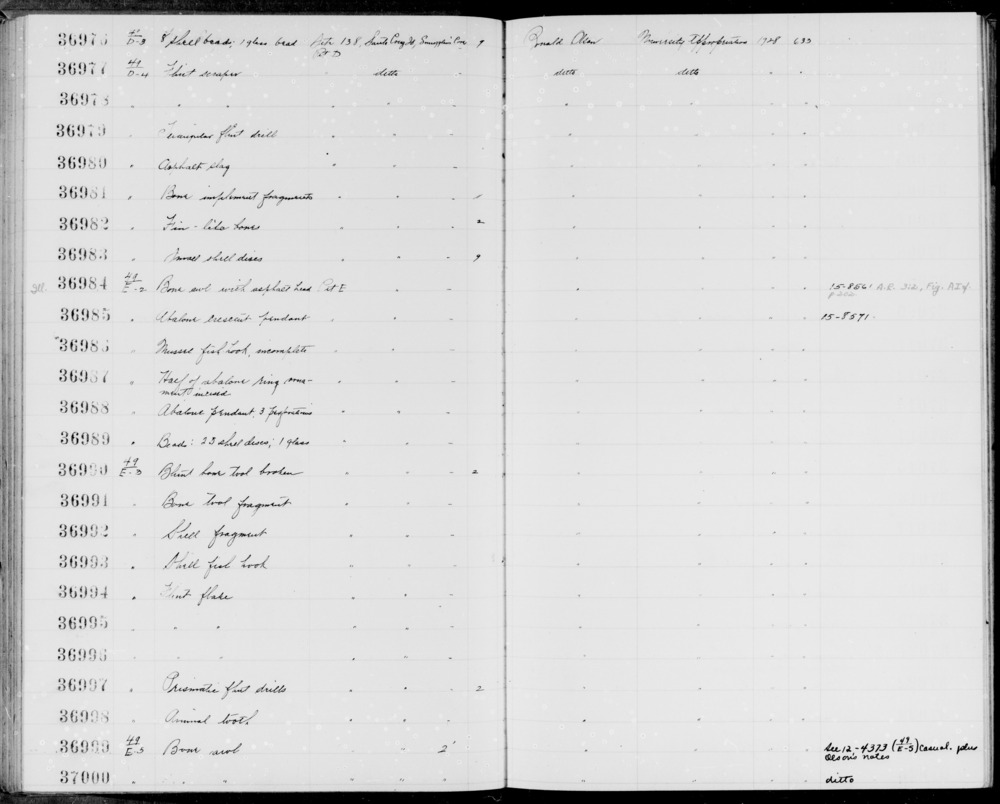 36976 49/D-3 8 shell beads; 1 glass bead Site 138, Santa Cruz Id, 9 Ronald Olson University Appropriation 1928 633
Pit D
36977 49/D-4 Flint scraper ditto ditto ditto " "
36978 " " " " " " " " " "
36979 " Triangular flint drill " " " " " " "
36980 " Asphalt slag " " " " " " "
36981 " Bone implement fragments " " " " " " "
36982 " Fin-like bones " " " 2 " " " "
36983 " Small shell discs " " " 9 " " " "
Ill. 36984 49/E-2 Bone awl with asphalt head Pit E " " " " " " 15-8561 A.R. 312, Fig.
36985 " Abalone crescent pendant " " " " " " " 15-8571.
36986 " Mussel fish hook, incomplete " " " " " " "
36987 " Half of abalone ring orna- " " " " " " "
ment incised
36988 " Abalone pendant, 3 perforations " " " " " " "
36989 " Beads: 23 shell discs; 1 glass " " " " " " "
36990 49/E-3 Blunt bone tool broken " " " 2 " " " "
36991 " Bone tool fragment " " " " " " "
36992 " Shell fragment " " " " " " "
36993 " Shell fish hook " " " " " " "
36994 " Flint flake " " " " " " "
36995 " " " " " " " " " "
36996 " " " " " " " " " "
36997 " Prismatic flint drills " " " 2 " " " "
36998 " Animal tooth " " " " " " "
36999 49/E-5 Bone awl " " 2' " " " " See 12-4373 (49/E-5) casual. plus
Olson's notes
37000 " " " " " " " " " ditto